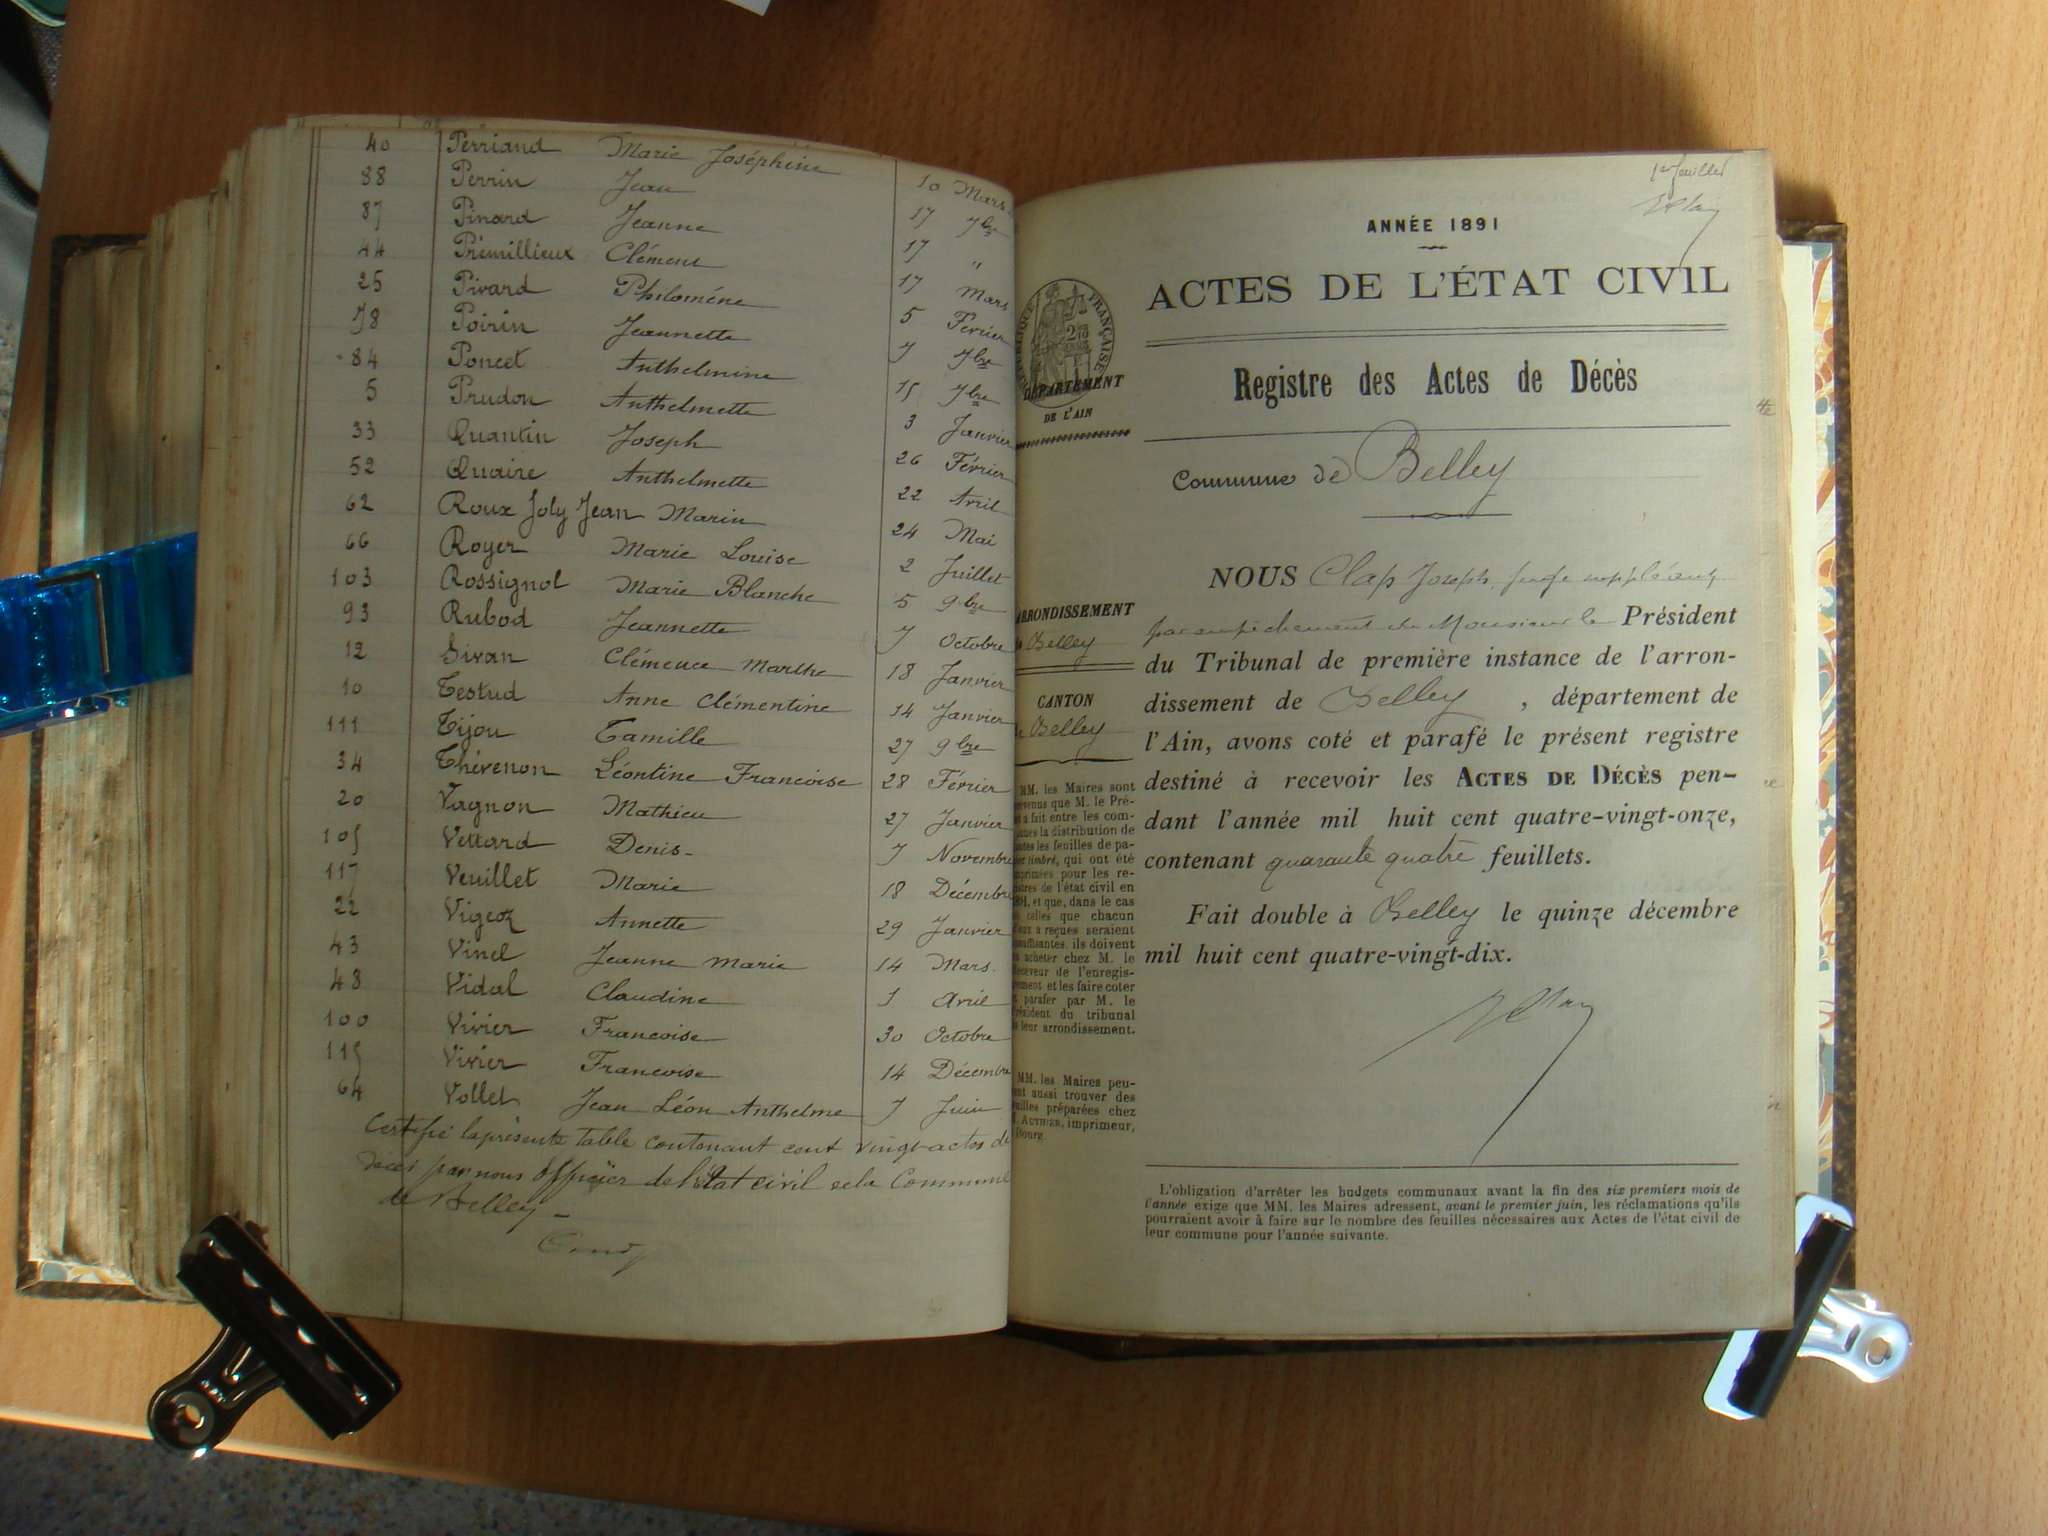 40 Perriand Marie Joséphine 10 Mars
88 Perrin Jean 17 7bre
87 Pinard Jeanne 17 "
44 Prémillieux Clément 17 Mars
25 Pivard Philomène 5 Février
78 Poirin Jeannette 7 7bre
84 Poncet Anthelmine 15 7bre
5 Prudon Anthelmette 3 Janvier
33 Quantin Joseph 26 Février
52 Quaire Anthelmette 22 Avril
62 Roux Joly Jean Marin 24 Mai
66 Royer Marie Louise 2 Juillet
103 Rossignol Marie Blanche 5 9bre
93 Rubod Jeannette 7 Octobre
12 Sivan Clémence Marthe 18 Janvier
10 Testud Anne Clémentine 14 Janvier
111 Tijou Camille 27 9bre
34 Thévenon Léontine Francoise 28 Février
20 Vagnon Mathieu 27 Janvier
105 Vettard Denis 7 Novembre
117 Veuillet Marie 18 Décembre
22 Vigeoz Annette 29 Janvier
43 Vinel Jeanne Marie 14 Mars.
48 Vidal Claudine 1 Avril
100 Vivier Francoise 30 Octobre
115 Vivier Francoise 14 Décembre
64 Vollet Jean Léon Anthelme 7 Juin
Certifié la présente table contenant cent vingt actes de
décès par nous officier de l'état civil de la Commune
de Belley
1er feuillet
ANNÉE 1891
ACTES DE L'ÉTAT CIVIL
RÉPUBLIQUE FRANÇAISE
DÉPARTEMENT
DE L'AIN
Registre des Actes de Décès
Commune de Belley
NOUS Clap Joseph, juge suppléant
par empêchement de Monsieur le Président
du Tribunal de première instance de l'arron-
dissement de Belley, département de
l'Ain, avons coté et parafé le présent registre
destiné à recevoir les ACTES DE DÉCÈS pen-
dant l'année mil huit cent quatre-vingt-onze,
contenant quarante quatre feuillets.
Fait double à Belley le quinze décembre
mil huit cent quatre-vingt-dix.
ARRONDISSEMENT
Belley
CANTON
Belley
MM. les Maires sont
que M. le Pré-
a fait entre les com-
la distribution de
les feuilles de pa-
timbré, qui ont été
pour les re-
de l'état civil en
et que, dans le cas
celles que chacun
a reçues seraient
ils doivent
acheter chez M. le
de l'enregis-
et les faire coter
parafer par M. le
du tribunal
leur arrondissement.
MM. les Maires peu-
aussi trouver des
préparées chez
imprimeur,
Bourg.
L'obligation d'arrêter les budgets communaux avant la fin des six premiers mois de
l'année exige que MM. les Maires adressent, avant le premier juin, les réclamations qu'ils
pourraient avoir à faire sur le nombre des feuilles nécessaires aux Actes de l'état civil de
leur commune pour l'année suivante.